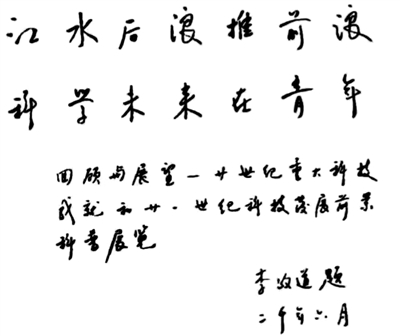 江水后浪推前浪
科学未来在青年
回顾与展望一廿世纪重大科技
成就和廿一世纪科技发展前景
科普展览
李政道题
二千年六月